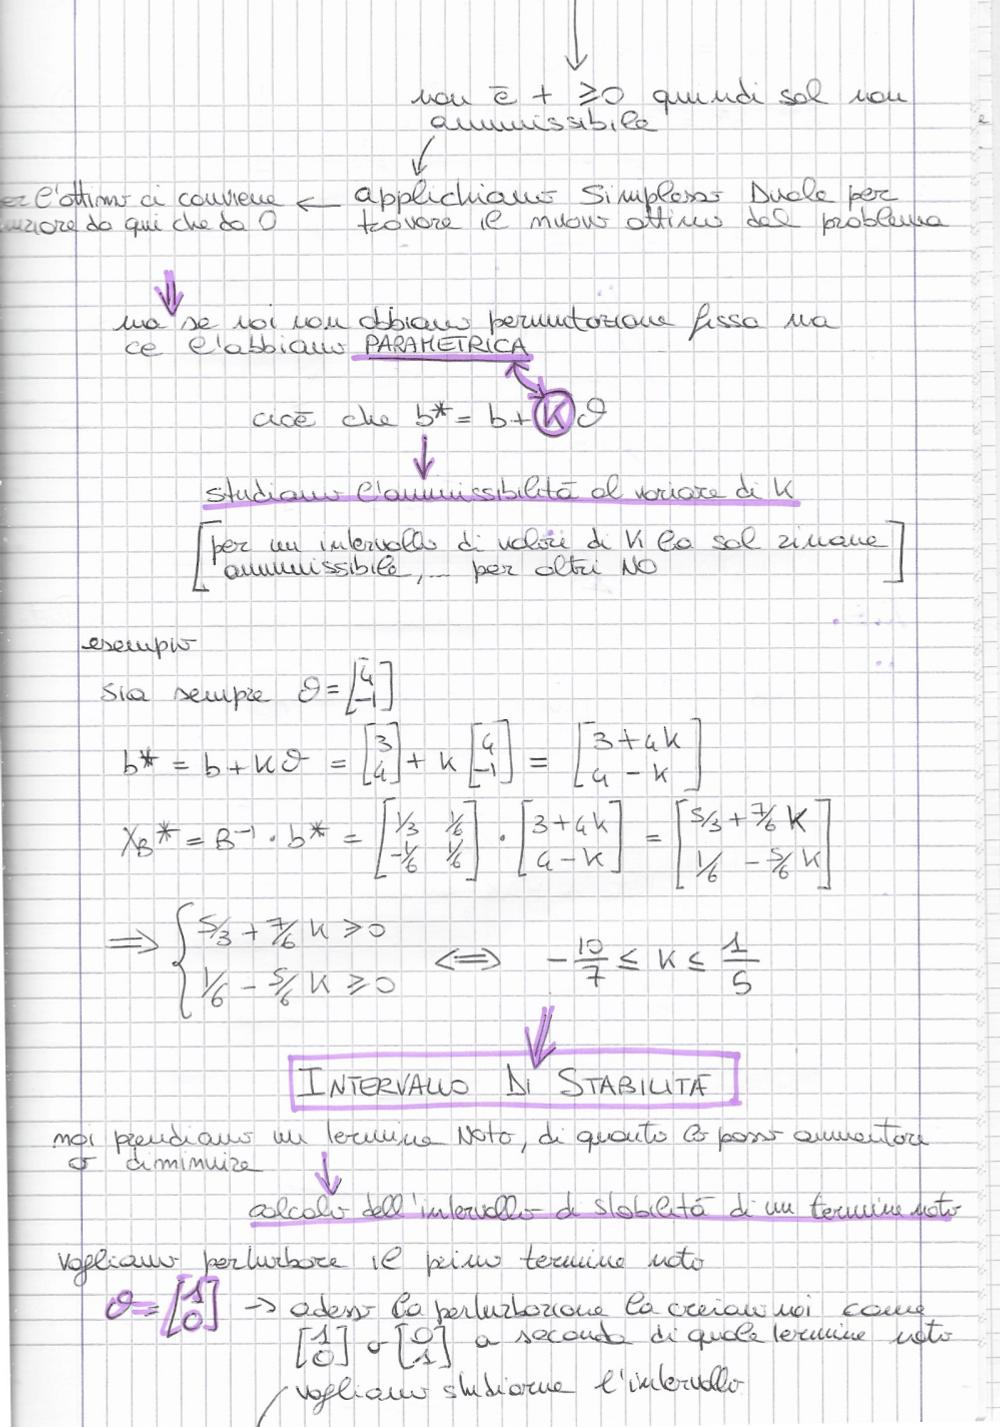 non è + ≥0 quindi sol non
ammissibile
applichiamo Simplesso Duale per
trovare il nuovo ottimo del problema
← l'ottimo ci conviene
da qui che da 0
ma se noi non abbiamo permutazione fissa ma
ce l'abbiamo PARAMETRICA
cioè che b* = b + K ϑ
studiamo l'ammissibilità al variare di K
[per un intervallo di valori di K la sol rimane
ammissibile, ... per altri NO]
esempio
sia sempre ϑ = [4 -1]
b* = b + Kϑ = [3 4] + K [4 -1] = [3+4K 4-K]
XB* = B⁻¹ · b* = [1/3 1/6 -1/6 1/6] · [3+4K 4-K] = [5/3 + 7/6 K 1/6 - 5/6 K]
⇒ { 5/3 + 7/6 K ≥ 0
1/6 - 5/6 K ≥ 0 ⇔ -10/7 ≤ K ≤ 1/5
INTERVALLO DI STABILITÀ
noi prendiamo un termine noto, di quanto lo posso aumentare
o diminuire
calcolo dell'intervallo di stabilità di un termine noto
vogliamo perturbare il primo termine noto
ϑ = [1 0] → adesso la perturbazione la creiamo noi come
[1 0] o [0 1] a seconda di quale termine noto
vogliamo studiarne l'intervallo